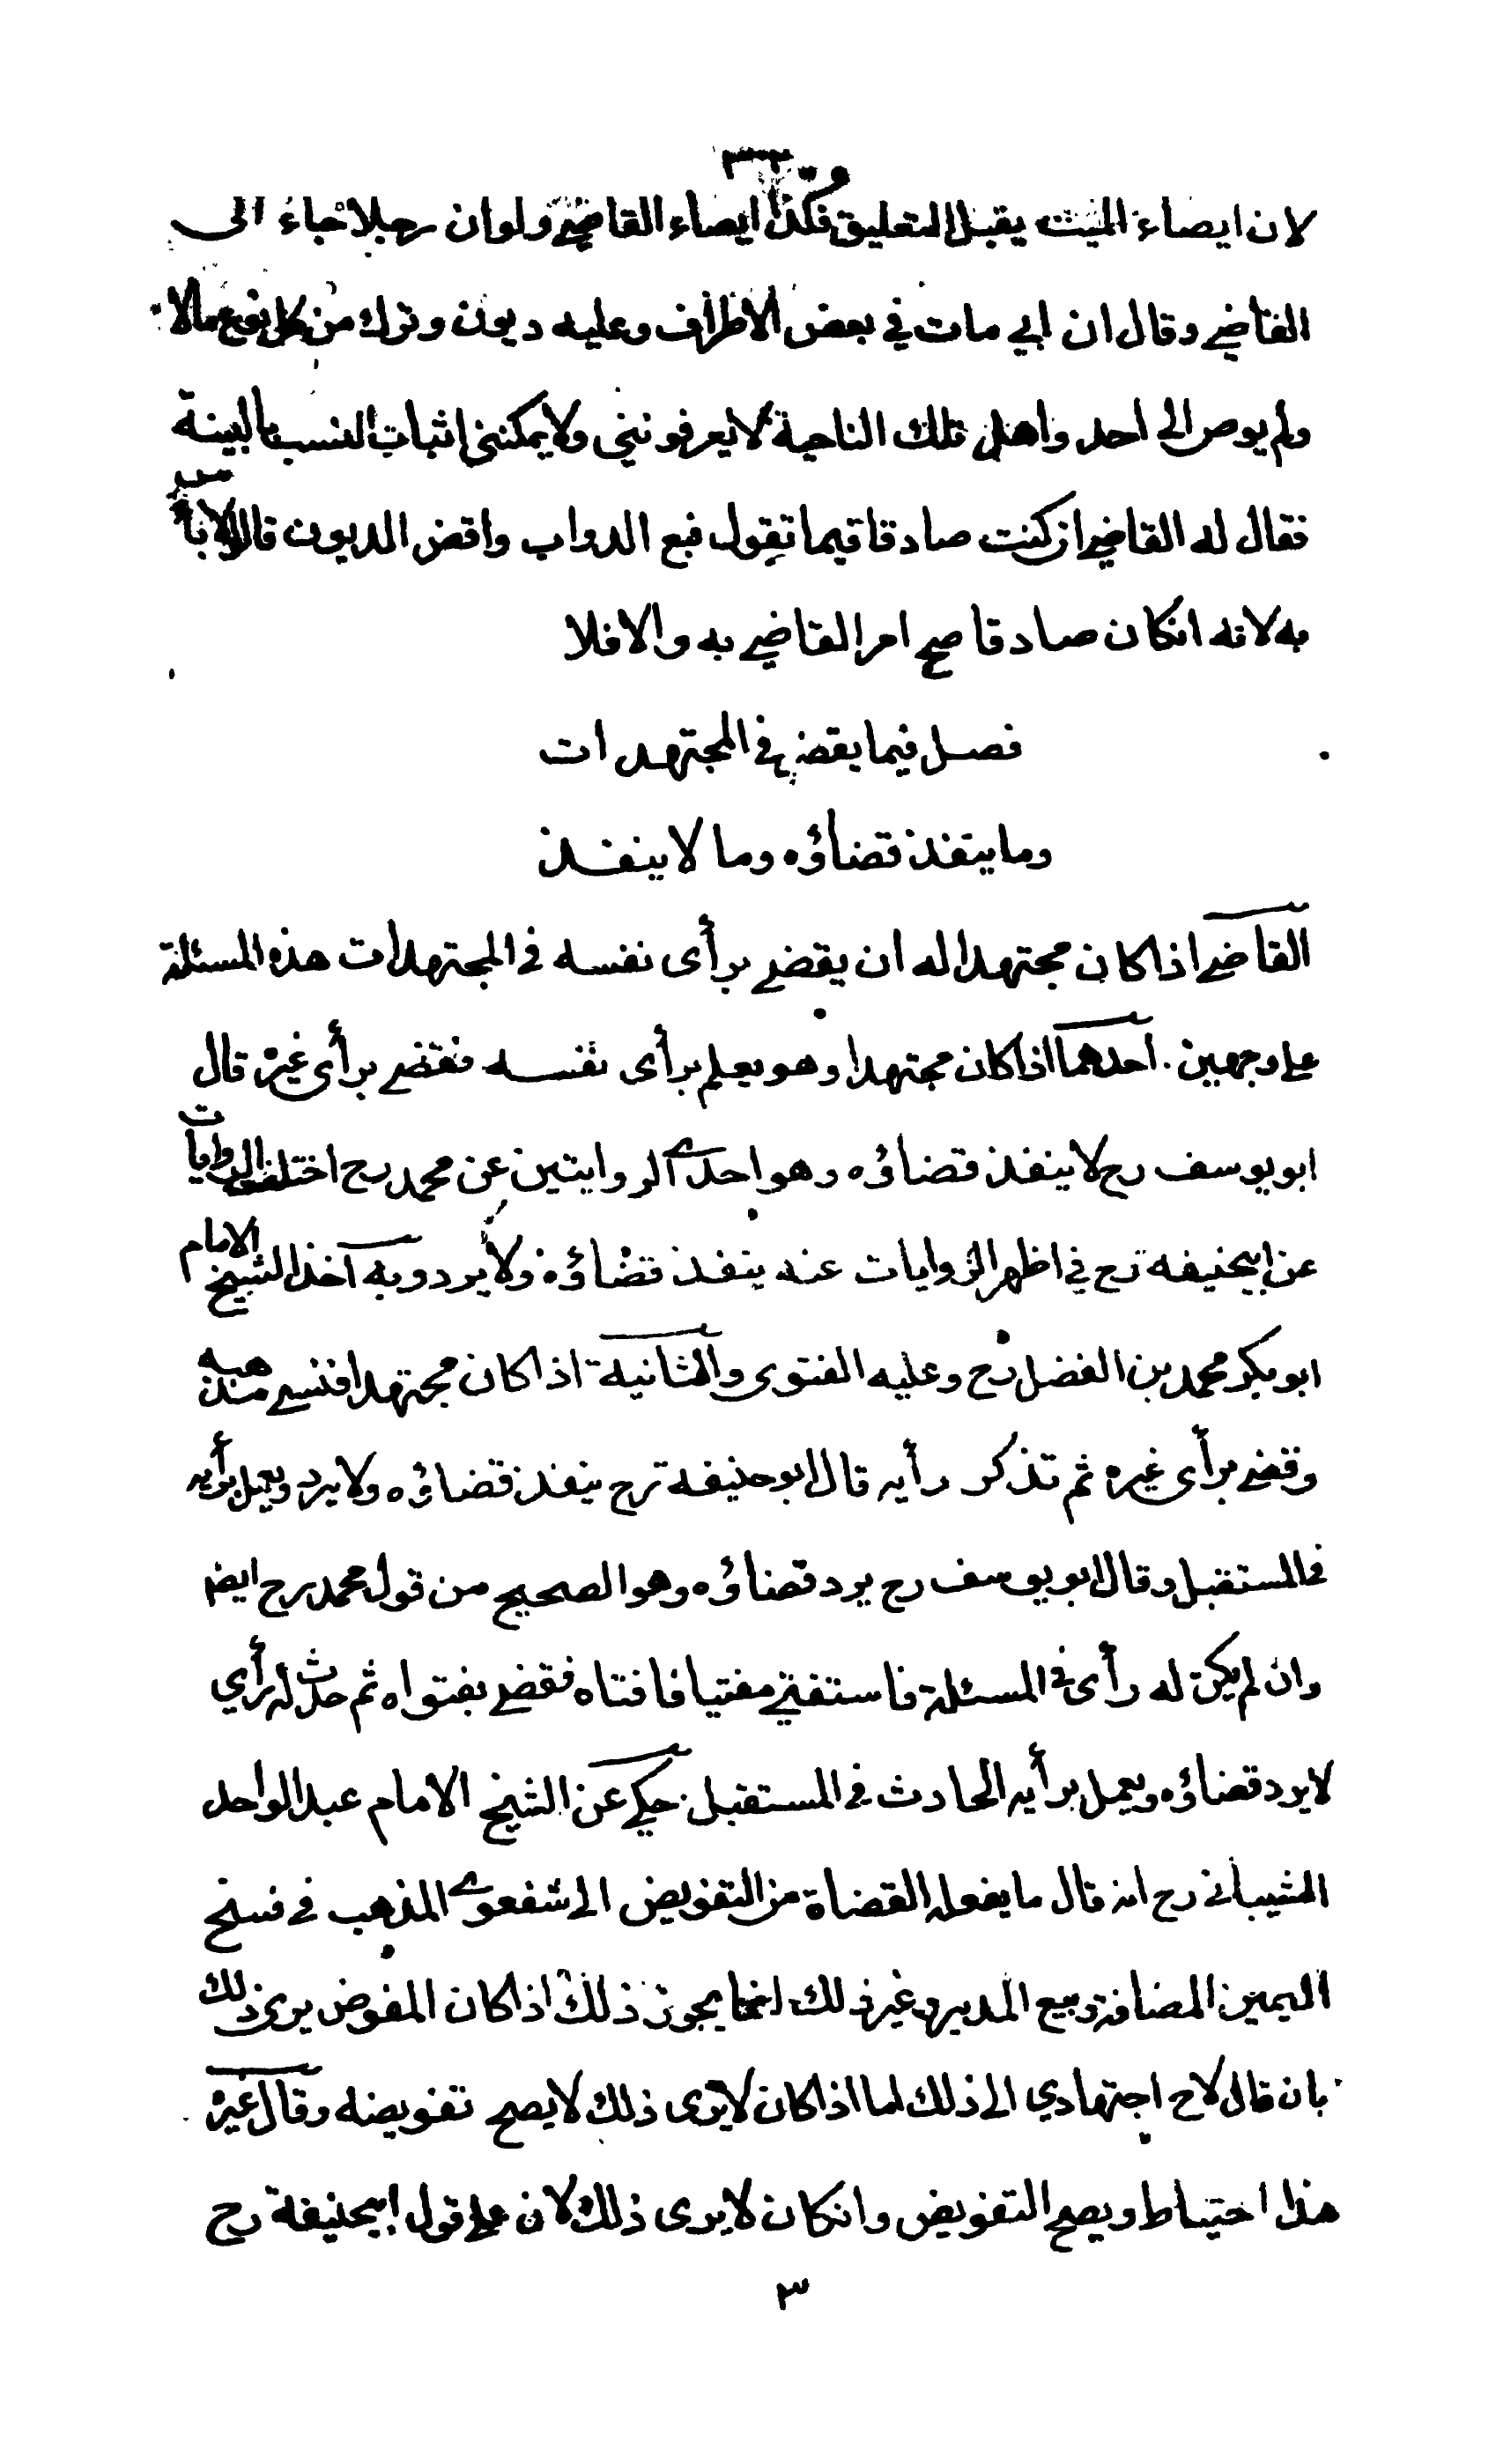 ٣٣
لان ايصاء الميت يقبل التعليق فكذا ايصاء القاضي ولو ان رجلا جاء الى
القاضي وقال ان ابي مات في بعض الاطراف وعليه ديون وترك من كل نوع مالا
ولم يوص الى احد واهل تلك الناحية لا يعرفونني ولا يمكنني اثبات النسب بالبينة
فقال له القاضي ان كنت صادقا فيما تقول فبع الدواب واقض الديون قالوا لا بأس
به لانه انكان صادقا صح امر القاضي به والا فلا
فصل فيما يقضي في المجتهدات
وما ينفذ قضاؤه وما لا ينفذ
القاضي اذا كان مجتهدا له ان يقضي برأى نفسه في المجتهدات هذه المسئلة
على وجهين احدهما اذا كان مجتهدا وهو يعلم برأى نفسه فقضى برأى غيره قال
ابو يوسف رح لا ينفذ قضاؤه وهو احدى الروايتين عن محمد رح اختلفت الروايات
عن ابيحنيفه رح في اظهر الروايات عنه ينفذ قضاؤه ولا يرد وبه اخذ الشيخ الامام
ابو بكر محمد بن الفضل رح وعليه الفتوى والثانية اذا كان مجتهدا فنسي مذهبه
وقضى برأى غيره ثم تذكر رأيه قال ابو حنيفه رح ينفذ قضاؤه ولا يرد ويعمل برأيه
في المستقبل وقال ابو يوسف رح يرد قضاؤه وهو الصحيح من قول محمد رح ايضا
وان لم يكن له رأى في المسئلة فاستفتى مفتيا فافتاه فقضى بفتواه ثم حدث له رأي
لا يرد قضاؤه ويعمل برأيه الحادث في المستقبل حكي عن الشيخ الامام عبد الواحد
الشيباني رح انه قال ما يفعله القضاة من التفويض الى شفعوى المذهب في فسخ
اليمين المضافة وبيع المدبر وغير ذلك انما يجوز ذلك اذا كان المفوض يرى ذلك
بان قال لاح اجتهادي الى ذلك اما اذا كان لا يرى ذلك لا يصح تفويضه وقال غيره
هذا احتياط ويصح التفويض وانكان لا يرى ذلك لان على قول ابيحنيفة رح
٣